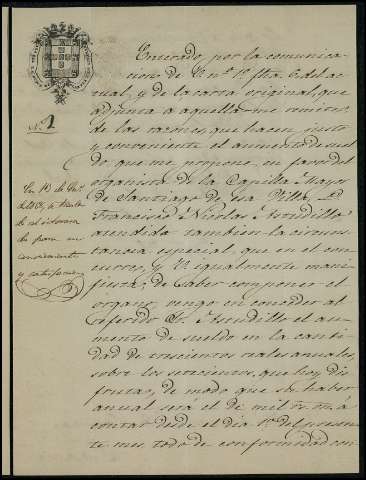 Enterado por la comunica-
cion de V. nº 1º fha 6 del ac-
tual, y de la carta original, que
adjunta á aquella me remite,
de las razones, que hacen justo
y conveniente el aumento de suel-
do que me propone, en favor del
organista de la Capilla Mayor
de Santiago de esa Villa, Dn
Francisco Nicolas Astudillo
atendida tambien la circuns-
tancia especial, que en el con-
curre, y V. igualmente mani-
fiesta, de saber componer el
organo, vengo en conceder al
referido Sr. Astudillo el au-
mento de sueldo en la canti-
dad de trescientos reales anuales,
sobre los setecientos, que hoy dis-
fruta, de modo que su haber
anual será el de mil rs. vn. á
contar desde el dia 1º del presen-
te mes, todo de conformidad con
N. 1
En 10 de
al interesado
para su
conocimiento
y satisfaccion